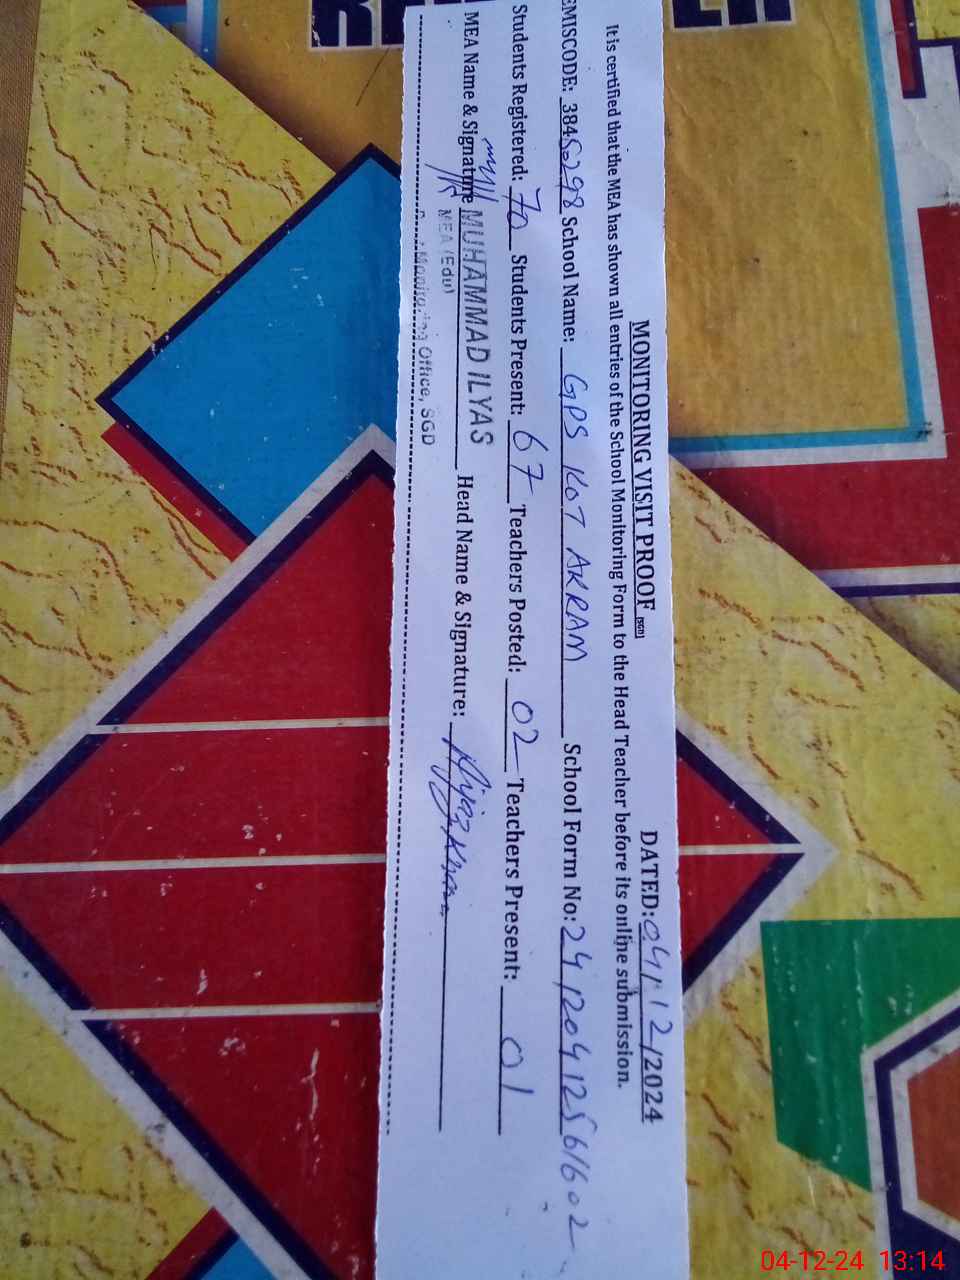 MONITORING VISIT PROOF (SGD) DATED: 04/12/2024
It is certified that the MEA has shown all entries of the School Monitoring Form to the Head Teacher before its online submission.
EMISCODE: 3845298 School Name: GPS KOT AKRAM School Form No: 24120412561602
Students Registered: 70 Students Present: 67 Teachers Posted: 02 Teachers Present: 01
MEA Name & Signature MUHAMMAD ILYAS Head Name & Signature:
MEA (Edu)
Monitoring Office, SGD
04-12-24 13:14